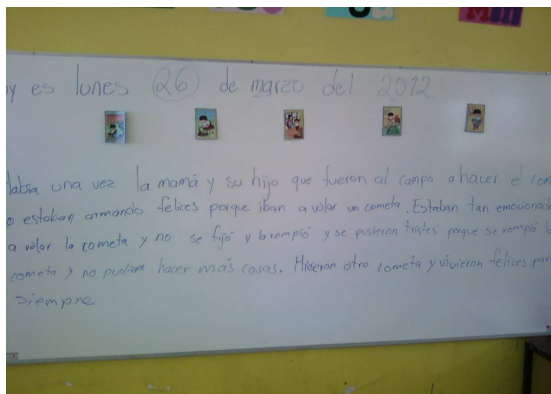 y es lunes 26 de marzo del 2012
abia una vez la mamá y su hijo que fueron al campo a hacer el com
o estaban armando felices porque iban a volar un cometa. Estaban tan emocionad
a volar la cometa y no se fijó y la rompió y se pusieron tristes porque se rompió l
cometa y no pudieron hacer más cosas. Hicieron otro cometa y vivieron felices par
siempre